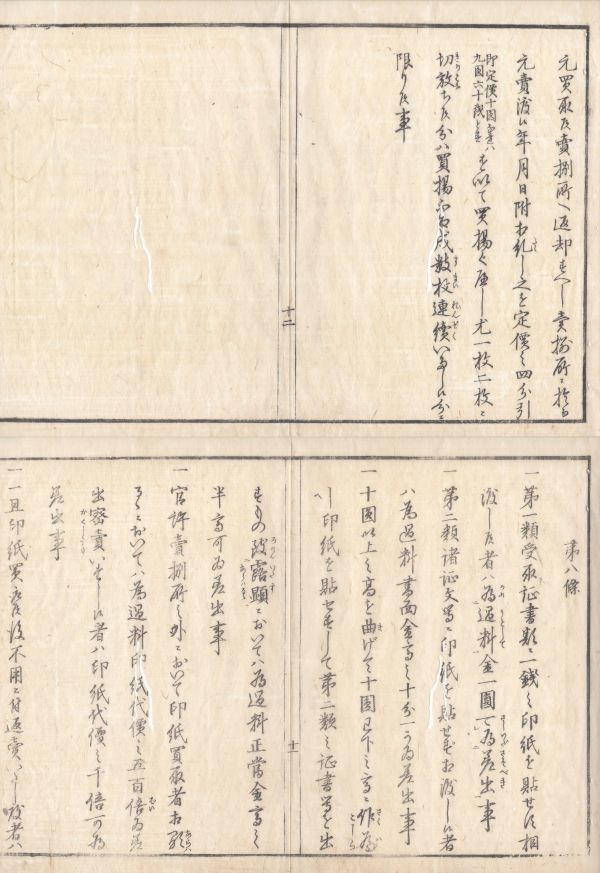 元買取候賣捌所へ返却すへし賣捌所ニ於テ
元賣渡候年月日附相糺し之を定價之四分引
即定價十圓ならハ
九圓六十錢とす
を以て買揚く可し尤一枚二枚ニ
切放ち候分ハ買揚不相成數枚連續いたし候分ニ
限り候事
十二
第八條
一 第一類受取証書類ニ一錢之印紙を貼せす相
渡し候者ハ為過料金一圓可為差出事
一 第二類諸証文等ニ印紙を貼せす相渡し候者
ハ為過料書面金高之十分一可為差出事
一 十圓以上之高を曲げて十圓已下之高ニ作為
し印紙を貼せすして第二類之証書等を出
すもの致露顯ニおいてハ為過料正當金高之
半高可為差出事
十一
一 官許賣捌所之外ニおいて印紙買取者相顯
るゝニおいてハ為過料印紙代價之五百倍為差
出密賣いたし候者ハ印紙代價之千倍可為
差出事
一 一旦印紙買取候後不用ニ付返賣いたし度者ハ